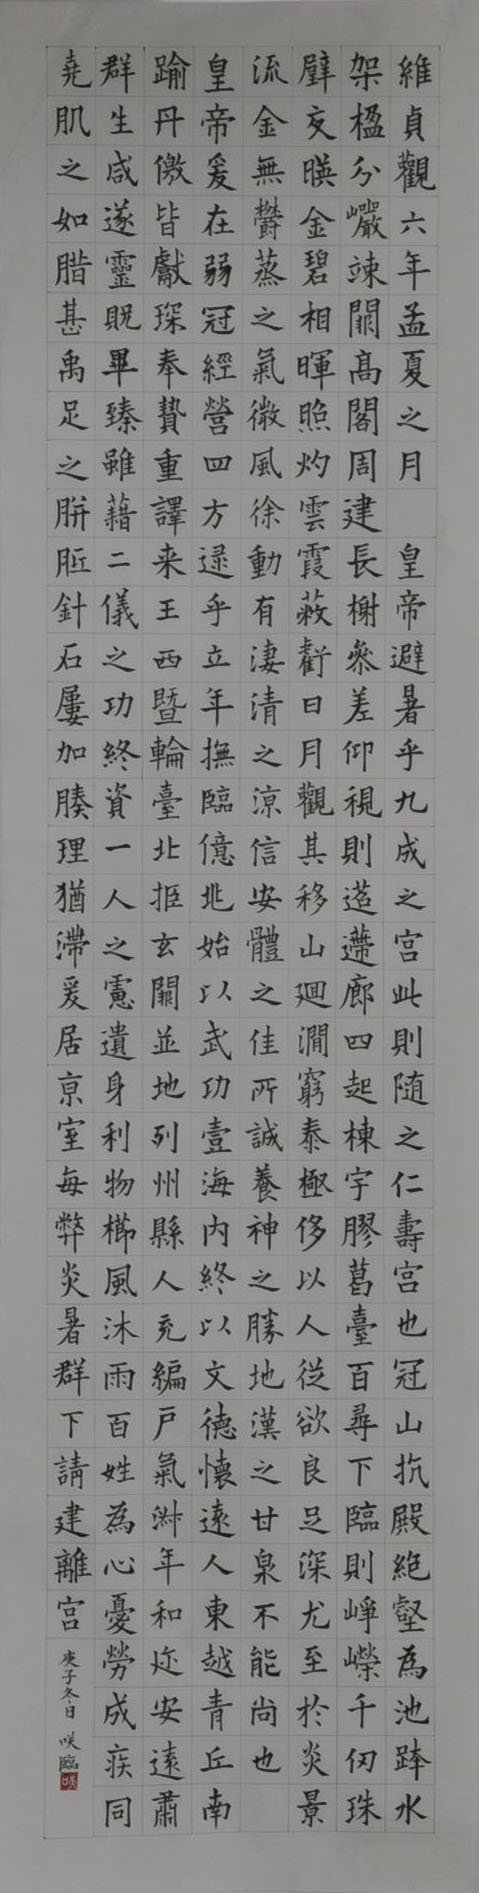 維貞觀六年孟夏之月 皇帝避暑乎九成之宮此則随之仁壽宮也冠山抗殿絶壑為池跨水
架楹分巖竦闕高閣周建長榭叅差仰視則迢遰廊四起棟宇膠葛臺百尋下臨則崢嶸千仞珠
壁交暎金碧相暉照灼雲霞蔽虧日月觀其移山廻澗窮泰極侈以人従欲良足深尤至於炎景
流金無欝蒸之氣微風徐動有淒清之涼信安體之佳所誠養神之勝地漢之甘泉不能尚也
皇帝爰在弱冠經營四方逮乎立年撫臨億兆始以武功壹海内終以文德懷遠人東越青丘南
踰丹徼皆獻琛奉贄重譯来王西暨輪臺北拒玄闕並地列州縣人充編戸氣淑年和迩安遠肅
群生咸遂靈貺畢臻雖藉二儀之功終資一人之慮遺身利物櫛風沐雨百姓為心憂勞成疾同
堯肌之如腊甚禹足之胼胝針石屢加腠理猶滯爰居京室每弊炎暑群下請建離宮
庚子冬日 咲臨